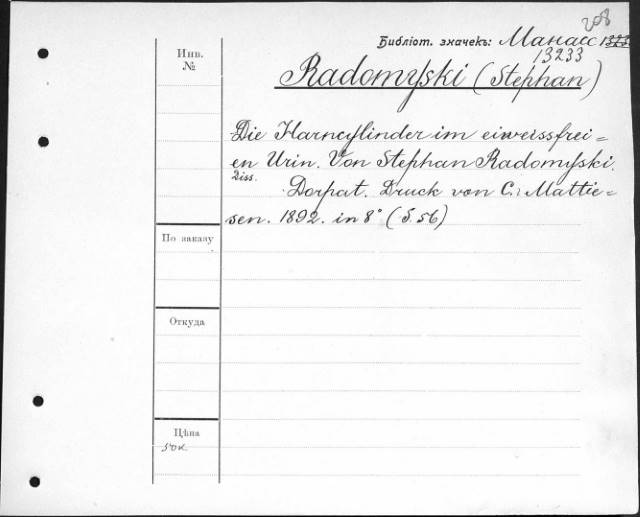 208
Библіот. значекъ: Манасс 1323
13233
Инв.
№
Radomyski (Stephan)
Die Harncylinder im eiweissfrei=
en Urin. Von Stephan Radomyski.
Diss.
Dorpat. Druck von C. Mattie=
sen. 1892. in 8° (S. 56)
По заказу
Откуда
Цѣна
50к.